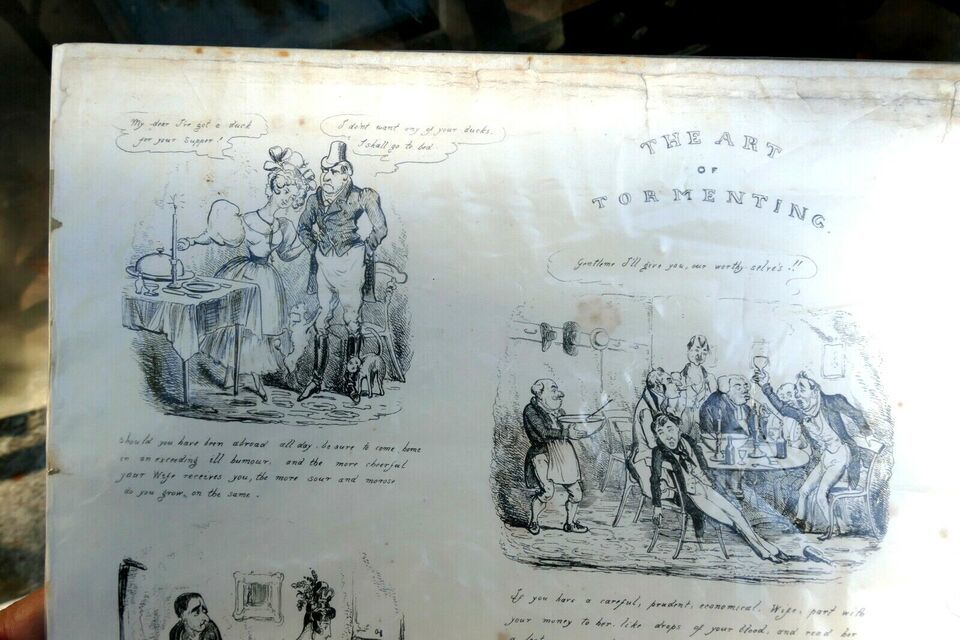 My dear I've got a duck
for your Supper!
I don't want any of your ducks.
I shall go to bed.
THE ART
OF
TORMENTING.
Gentleme I'll give you, our worthy selve's.!!
Should you have been abroad all day. be sure to come home
in an exceeding ill humour, and the more cheerful
your Wife receives you, the more sour and morose
do you grow, on the same.
If you have a careful, prudent, economical, Wife, part with
your money to her, like drops of your blood, and read her
a